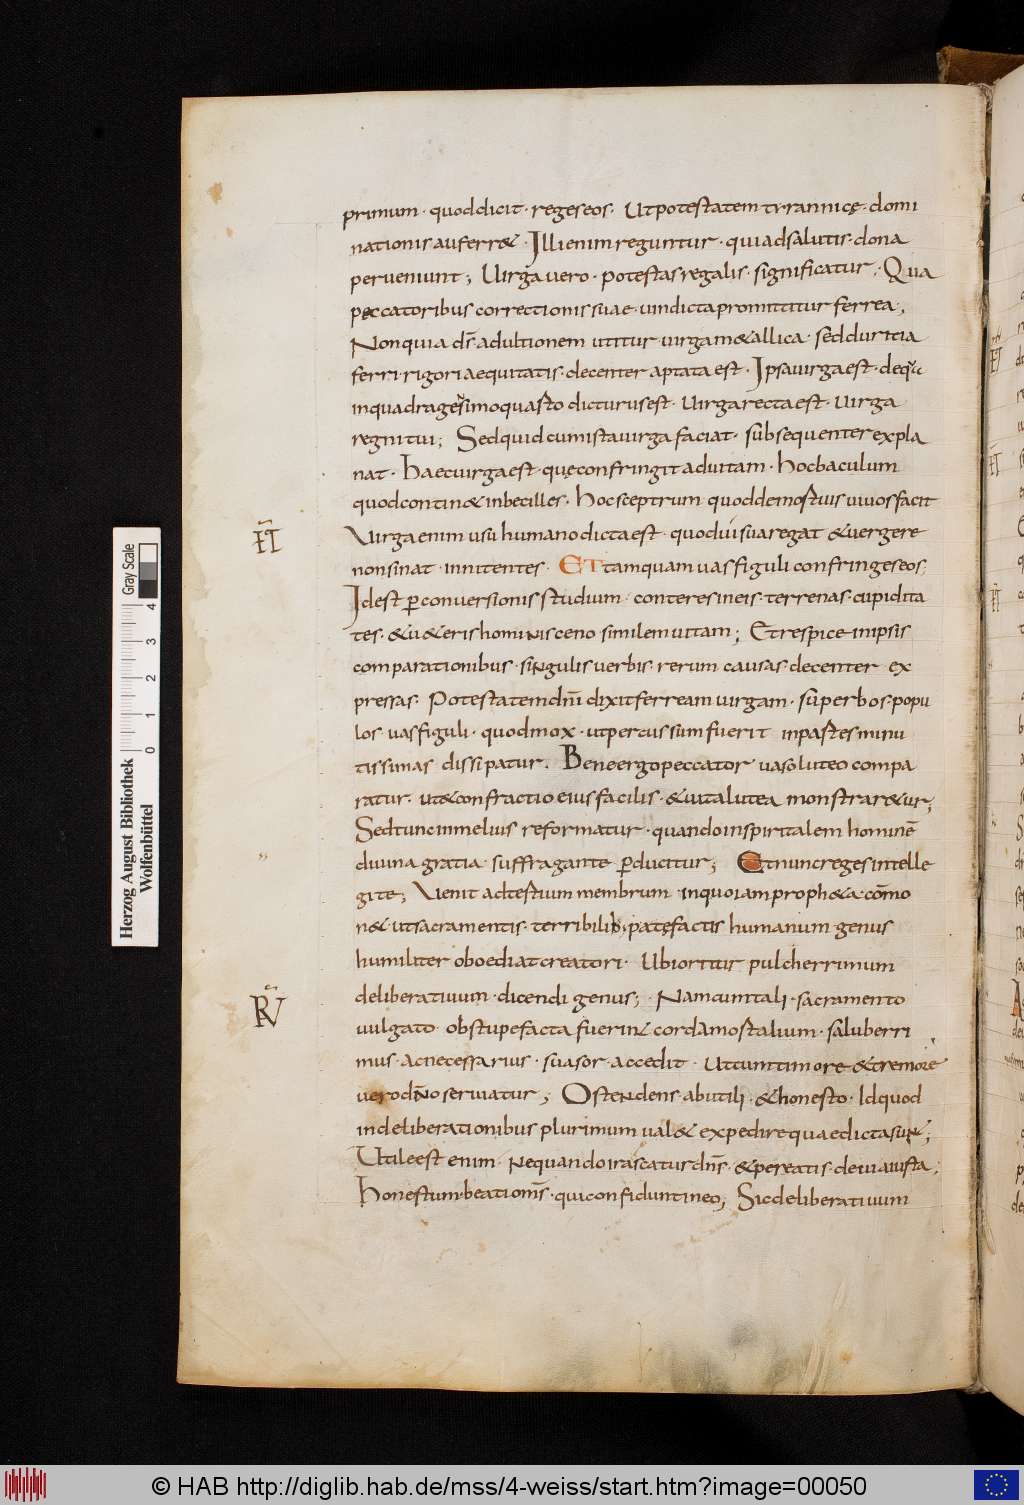 primum · quoddicit · regeseos · Utpotestatem tyrannicę · domi
nationis auferr& · Illi enim reguntur · qui adsalutis · dona
perveniunt ; Uirga vero · potestas regalis · significatur ; Qua
peccatoribus correctionis suae · uindicta promittitur ferrea ;
Non quia ds̄ · adultionem utitur uirgam &allica · sed duritia
ferri · rigori aequitatis · decenter aptata est · Ipsa uirga est · de qua
in quadragesimo quarto dicturus est · Uirga recta est · Uirga
regni tui ; Sed quid cum ista uirga faciat · subsequenter expla
nat · Haec uirga est · quę confringit ad uitam · Hoc baculum
quod contin& inbecilles · Hoc sceptrum quod de mortuis uiuos facit
Uirga enim usu humano dicta est · quod ui sua regat &uergere
non sinat · innitentes · ET tamquam uas figuli confringes eos ;
Id est p̄ conuersionis studium · conteres in eis · terrenas · cupidita
tes · &u&eris hominis ceno similem uitam ; Et respice in ipsis
comparationibus · singulis uerbis · rerum causas · decenter · ex
pressas · Potestatem dn̄i dixit ferream uirgam · superbos · popu
los · uas figuli · quod mox · ut percussum fuerit in partes minu
tissimas dissipatur · Bene ergo peccator uaso luteo compa
ratur · ut & confractio eius facilis · & uita lutea monstrar&ur ;
Sed tunc in melius reformatur · quando in spiritalem hominē
diuina gratia suffragante p̄ducitur ; Et nunc reges intelle
gite ; Uenit ad tertium membrum in quo iam proph&a com̄o
n& ut sacramentis · terribilib; patefactis humanum genus
humiliter oboediat creatori · Ubi oritur pulcherrimum
deliberatiuum · dicendi genus ; · Nam cum tali · sacramento
uulgato · obstupefacta fuerint corda mortalium · saluberri
mus · ac necessarius · suasor · accedit · Ut cum timore & tremore
uero dn̄o seruiatur ; Ostendens · ab utili · & honesto · Id quod
in deliberationibus plurimum ual& expedire quae dicta sunt ;
Utile est enim · Ne quando irascatur dn̄s · & pereatis · de uia iusta ;
Honestum · beationis̄ · qui confidunt in eo ; Sic deliberatiuum
Herzog August Bibliothek
Wolfenbüttel
0 1 2 3 4
Gray Scale
© HAB http://diglib.hab.de/mss/4-weiss/start.htm?image=00050